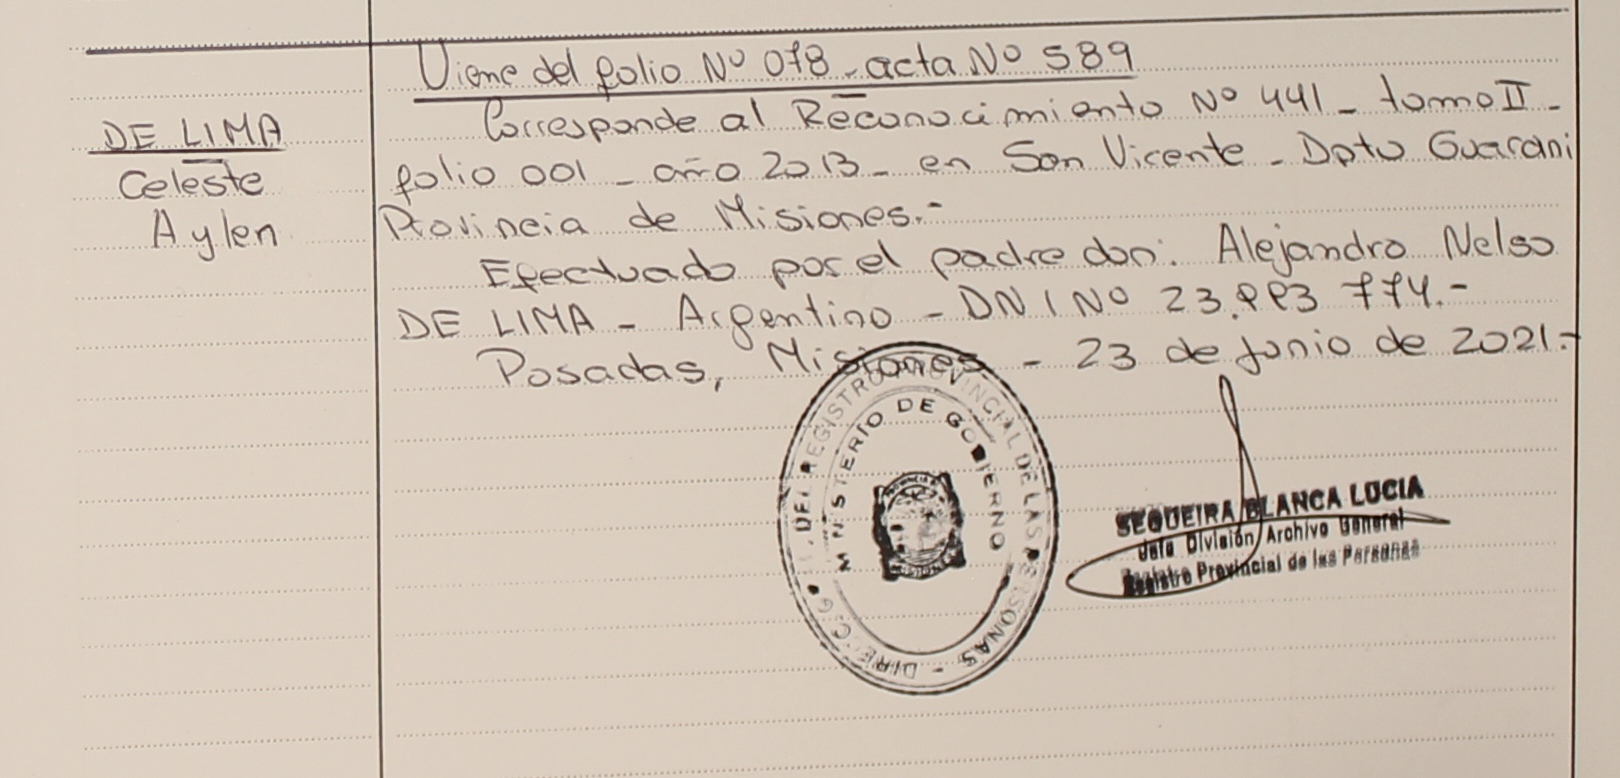 Viene del folio Nº 078 - acta Nº 589
DE LIMA
Celeste
Aylen
Corresponde al Reconocimiento Nº 441 - tomo II -
folio 001 - año 2013 - en San Vicente - Dpto Guarani
Provincia de Misiones.-
Efectuado por el padre don: Alejandro Nelso
DE LIMA - Argentino - DNI Nº 23.993 774.-
Posadas, Misiones - 23 de junio de 2021.-
DEL REGISTRO PROVINCIAL DE LAS PERSONAS -
MINISTERIO DE GOBIERNO
MISIONES
SEQUEIRA BLANCA LUCIA
Jefa División Archivo General
Registro Provincial de las Personas